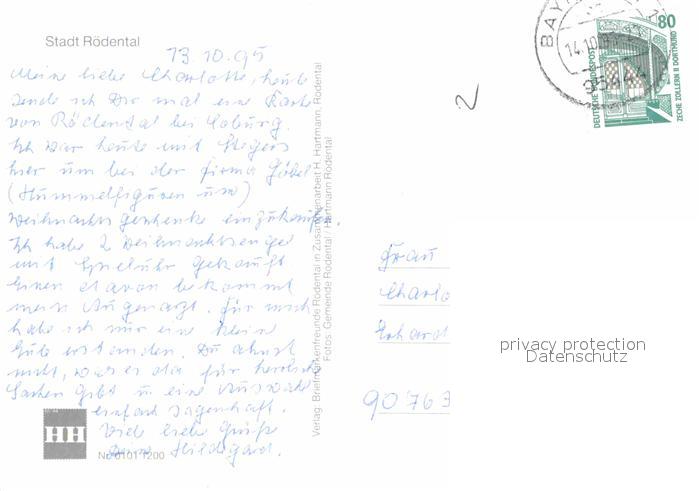 Stadt Rödental
13.10.95
Meine liebe Charlotte, heute
sende ich Dir mal eine Karte
von Rödental bei Coburg.
Ich war heute mit Stegers
hier um bei der Firma Göbel
(Hummelfiguren usw)
Weihnachtsgeschenke einzukaufen.
Ich habe 2 Weihnachtsengel
mit Spieluhr gekauft
Einen davon bekommt
mein Augenarzt. Für mich
habe ich nur eine kleine
Eule erstanden. Du ahnst
nicht, was es da für herrliche
Sachen gibt u eine Auswahl
einfach sagenhaft.
Viele liebe Grüße
Deine Hildegard.
HH
Nr. 0101 1200
Verlag: Briefmarkenfreunde Rödental in Zusammenarbeit H. Hartmann, Rödental
Fotos: Gemeinde Rödental / Hartmann Rödental
14.10.95
80
DEUTSCHE BUNDESPOST
ZECHE ZOLLERN II DORTMUND
Frau
Charlo
Erhardt
90763
privacy protection
Datenschutz